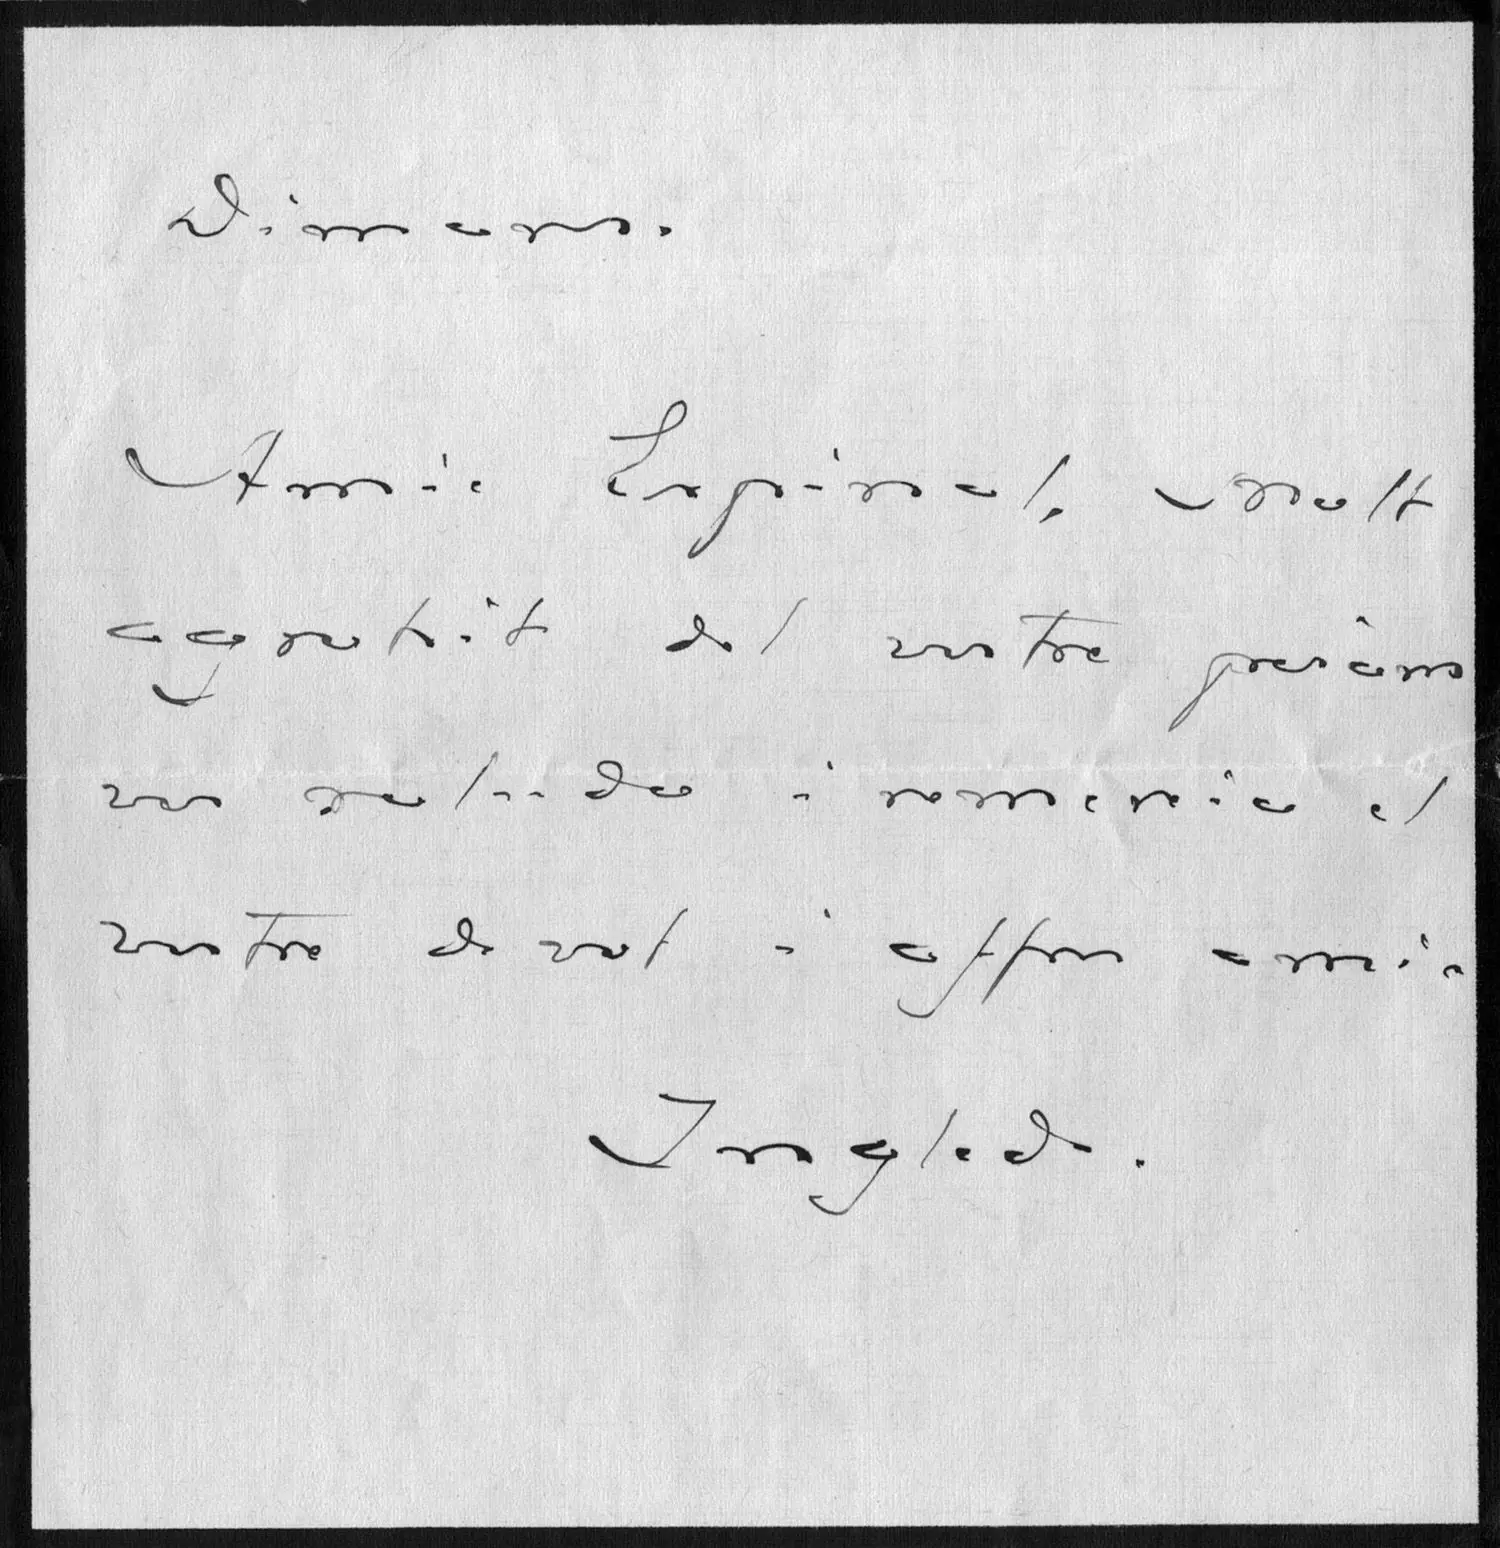 Dimars.
Amic Espinal, Molt
agrahit del vostre
vos saluda i remercia el
vostre devot i affm amic
Inglada.